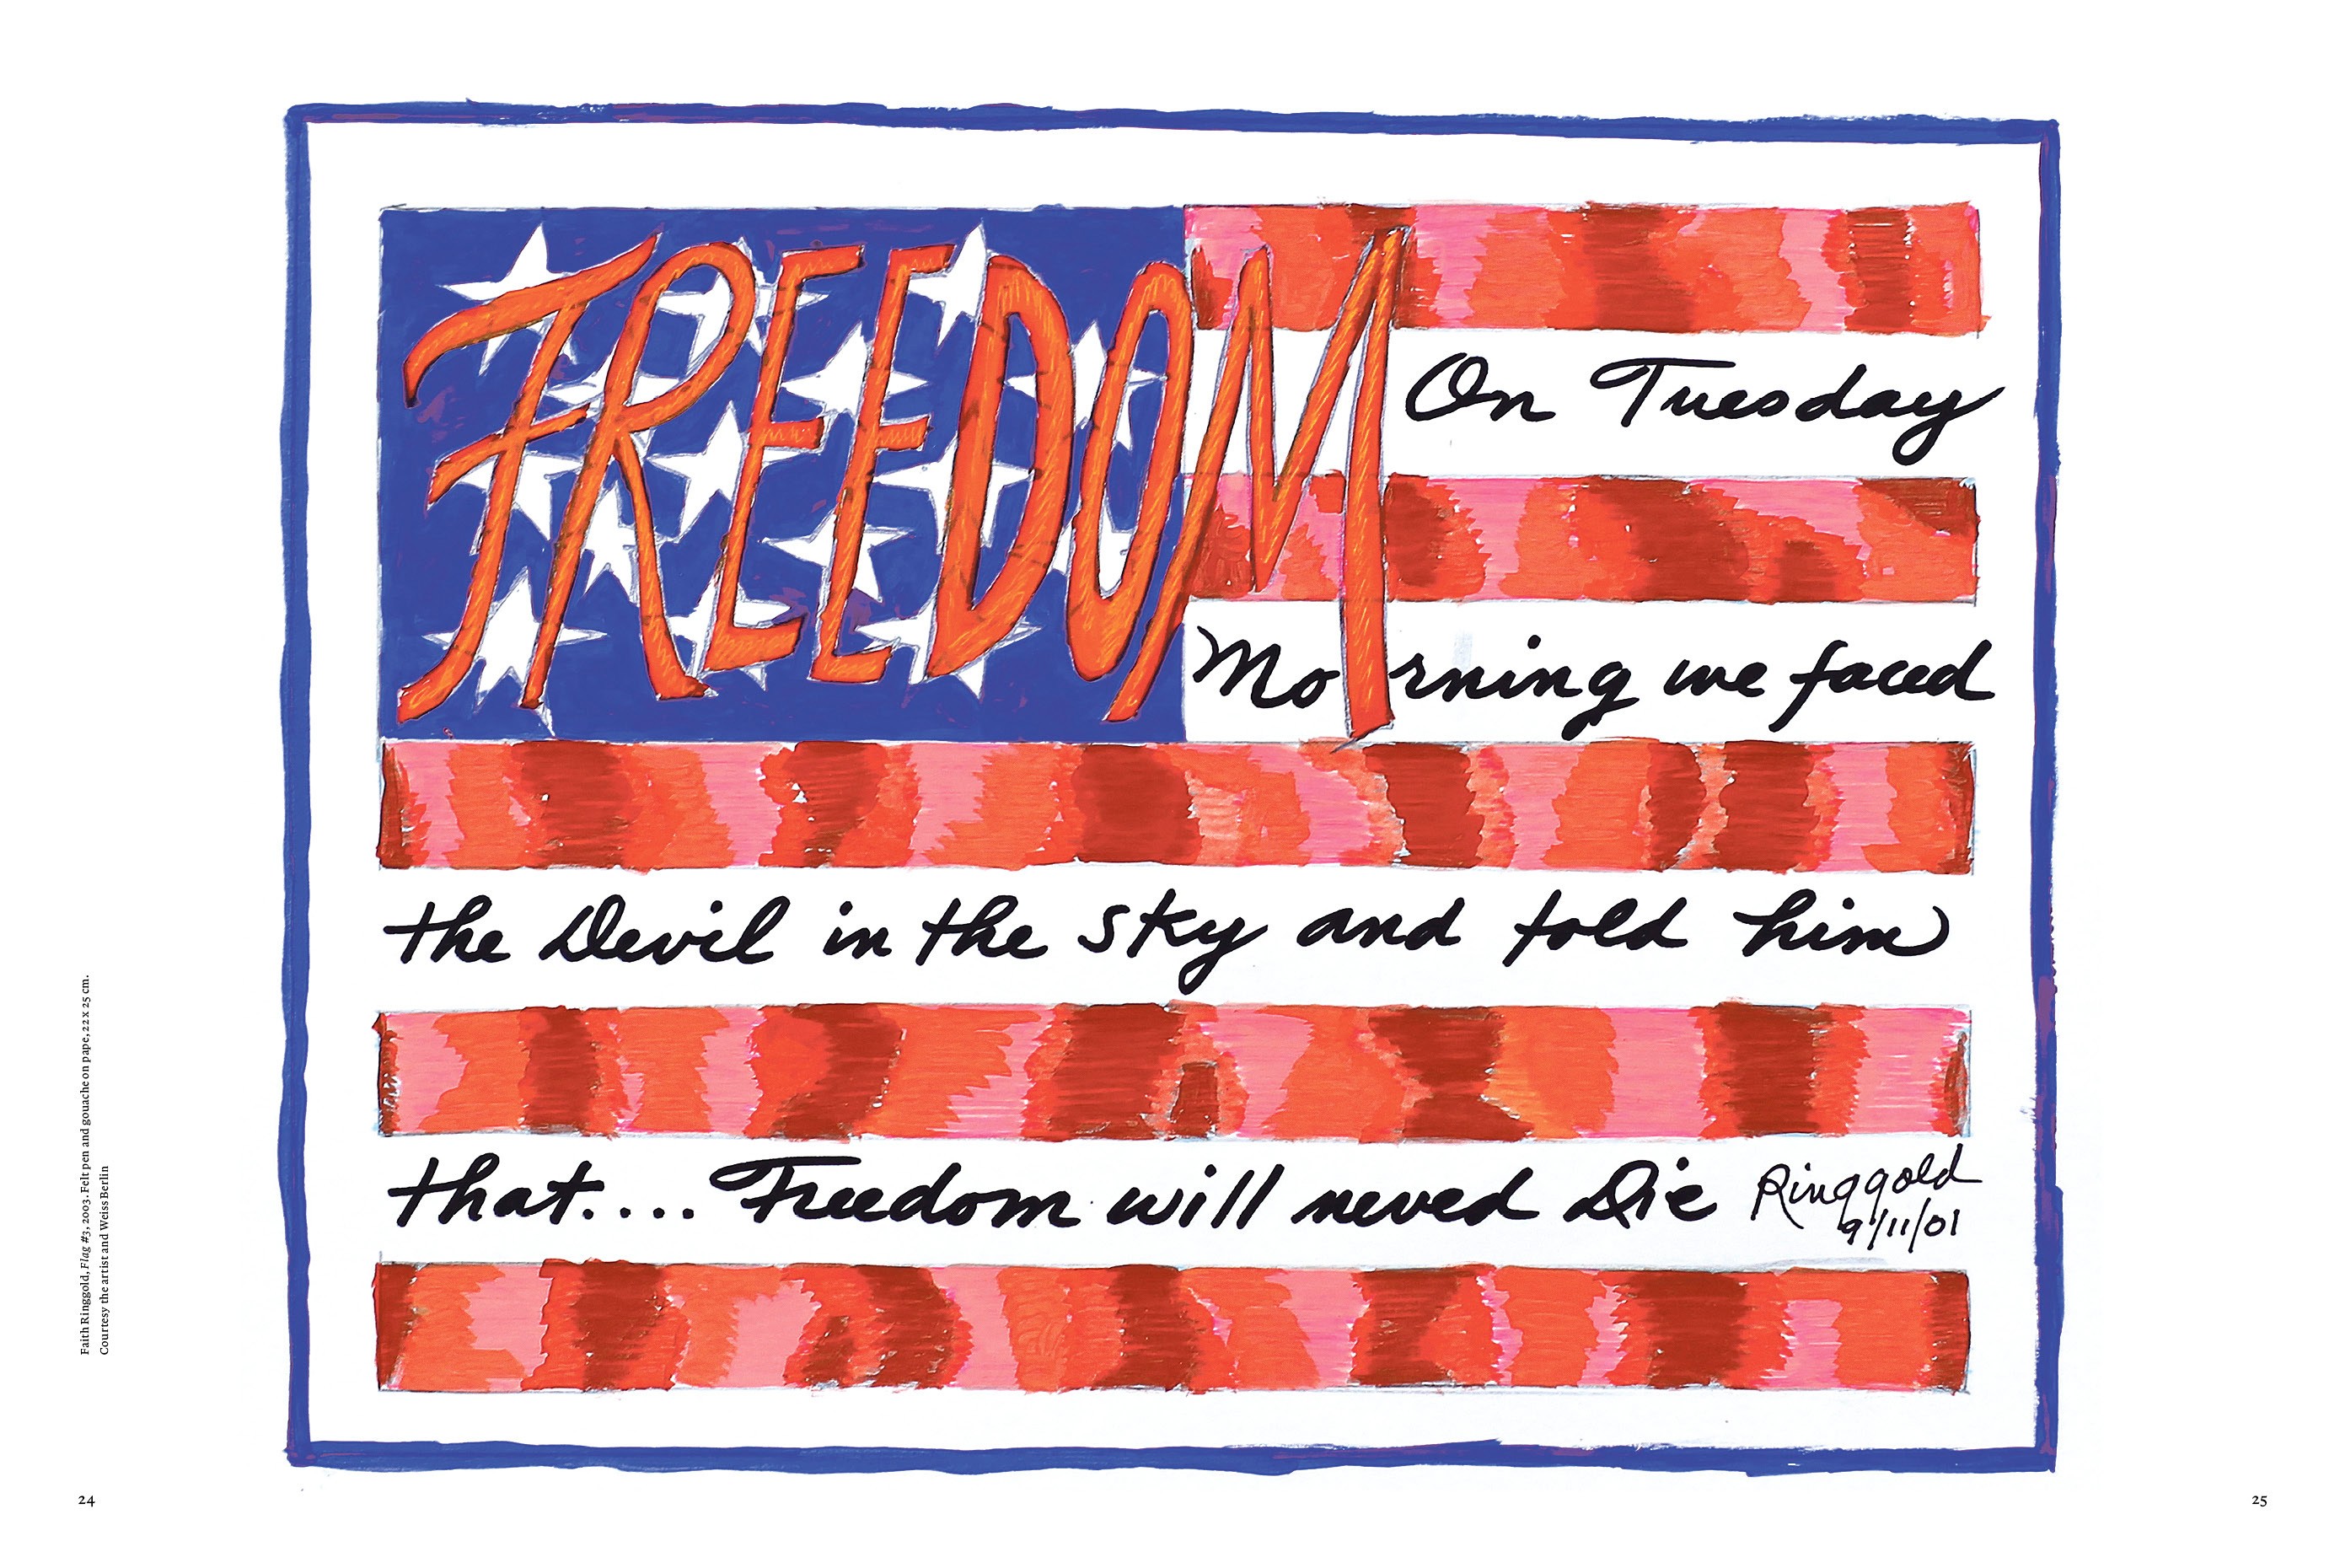 FREEDOM
On Tuesday
Morning we faced
the Devil in the sky and told him
that.... Freedom will neved Die
Ringgold
9/11/01
Faith Ringgold, Flag #3, 2003. Felt pen and gouache on pape, 22 x 25 cm.
Courtesy the artist and Weiss Berlin
24
25